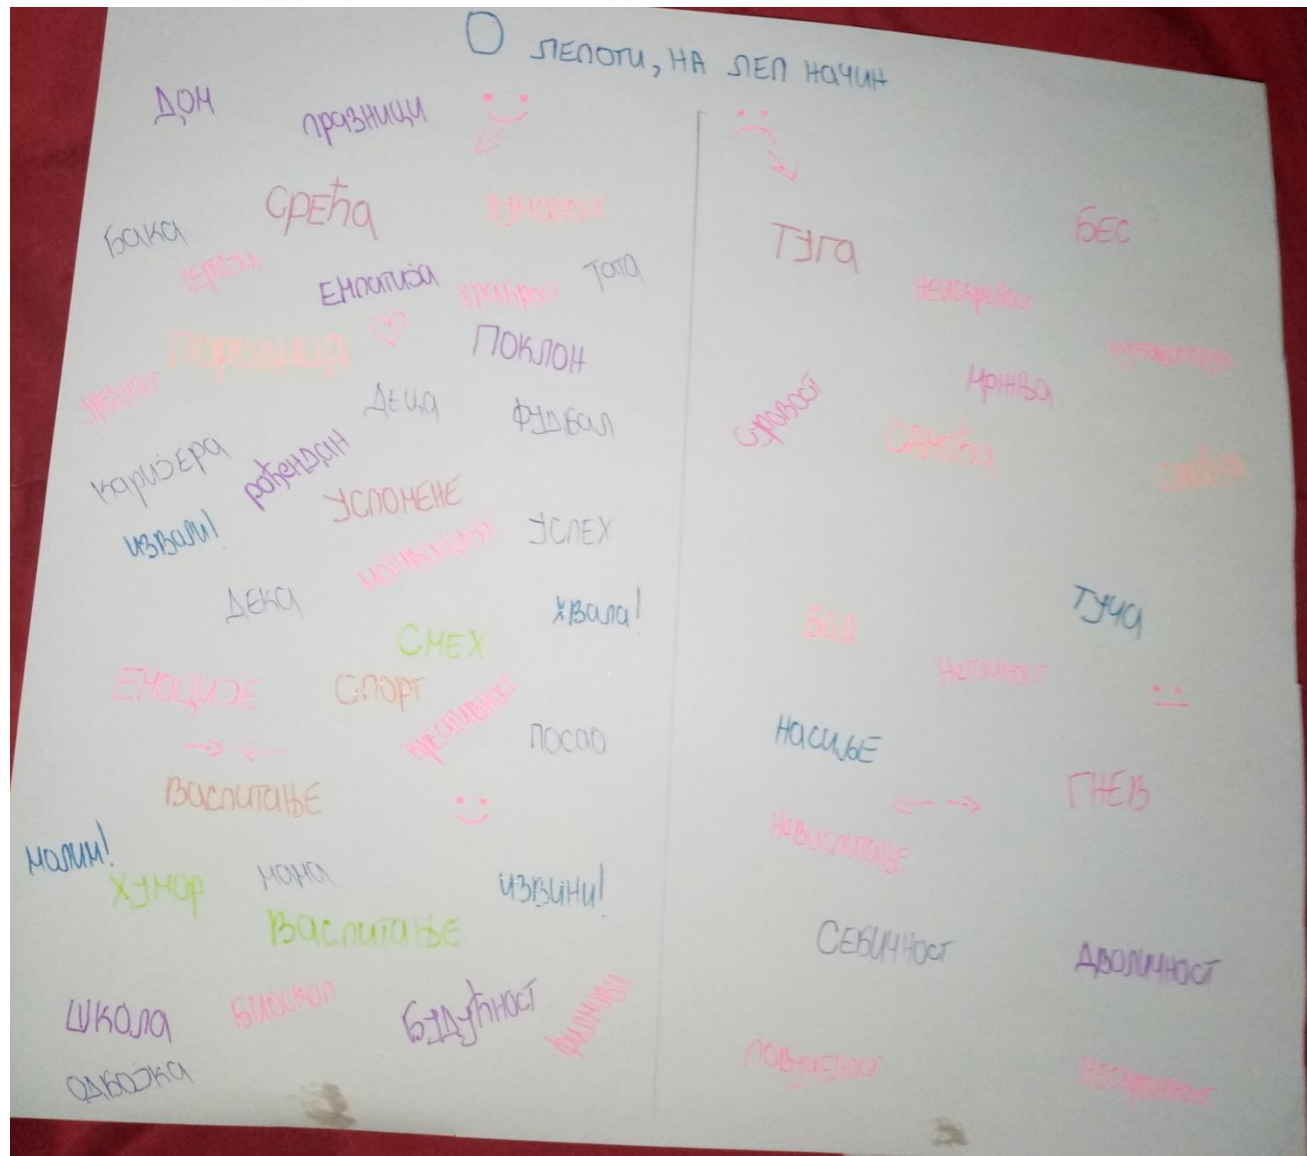 О ЛЕПОТИ, НА ЛЕП НАЧИН
ДОМ
ПРАЗНИЦИ
СРЕЋА
БАКА
ЕМПАТИЈА
ХРАБРОСТ
ТАТА
ПОРОДИЦА
ПОКЛОН
ВРЕДНОСТ
ДЕЦА
ФУДБАЛ
КАРИЈЕРА
РОЂЕНДАН
УСПОМЕНЕ
ИЗВОЛИ!
МОТИВАЦИЈА
УСПЕХ
ДЕКА
ХВАЛА!
СМЕХ
ЕМОЦИЈЕ
СПОРТ
КРЕАТИВНОСТ
ПОСАО
ВАСПИТАЊЕ
МОЛИМ!
ХУМОР
МАМА
ИЗВИНИ!
ВАСПИТАЊЕ
ШКОЛА
БИОСКОП
БУДУЋНОСТ
ФИЛМОВИ
ОДБОЈКА
ТУГА
БЕС
НЕИСКРЕНОСТ
МРЖЊА
СУРОВОСТ
САМОЋА
СВАЂА
ТУЧА
БОЛ
НЕТАЧНОСТ
НАСИЉЕ
ГНЕВ
НЕВАСПИТАЊЕ
СЕБИЧНОСТ
ДВОЛИЧНОСТ
ПОВУЧЕНОСТ